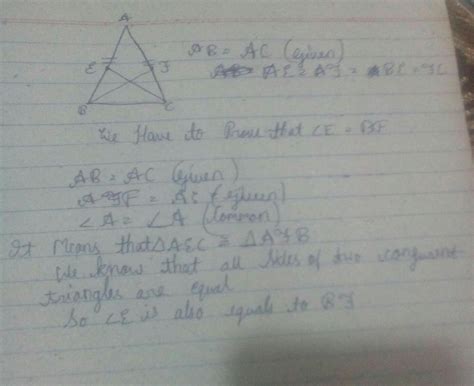 A
E F
B C
AB = AC (given)
AE = AF = BE = FC
We Have to Prove that CE = BF
AB = AC (given)
AF = AE (given)
∠A = ∠A (common)
It Means that ΔAEC ≅ ΔAFB
We know that all sides of two congruent
triangles are equal
So CE is also equals to BF